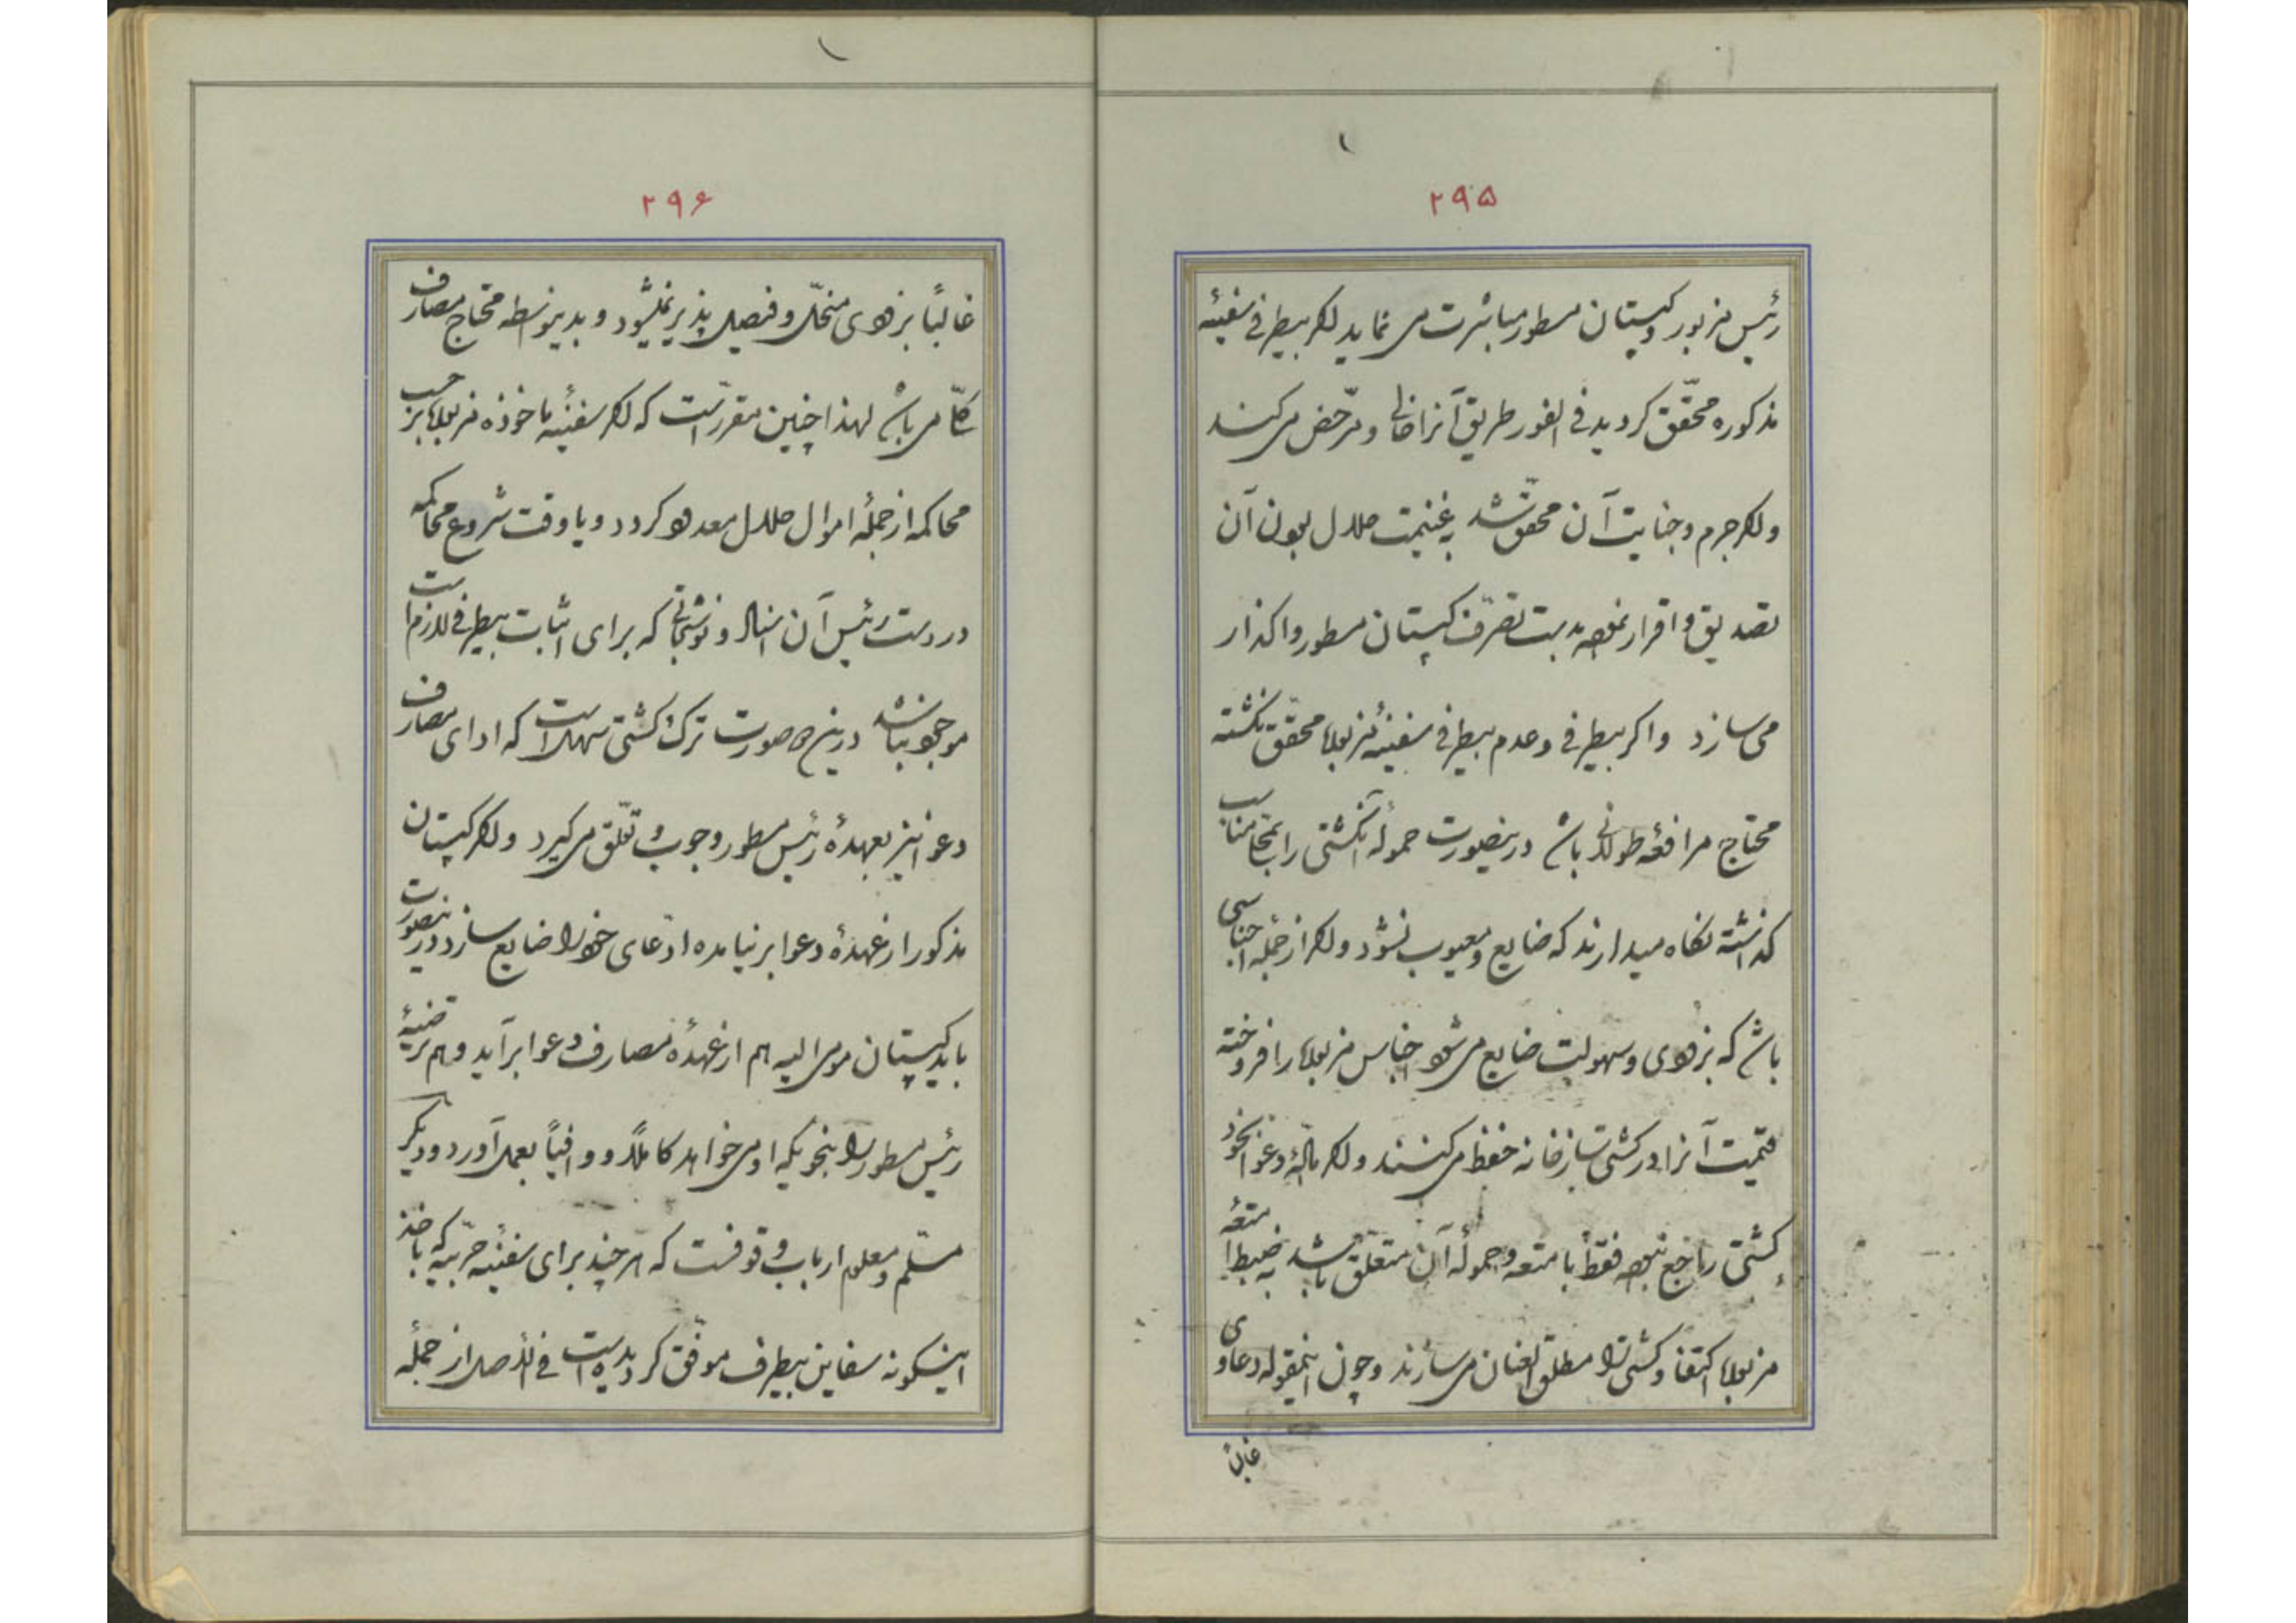 ۲۹۵
رئیس مزبور و کپیتان مسطور مباشرت می نماید اکر بیطرفی سفینهٔ
مذکوره محقّق کردید فی الفور طریق آنرا خالی و مرّخص می کنند
و اکر جرم و جنایت آن محقّق شد به غنیمت حلال بودن آن
تصدیق و اقرار نموده بدست تصرّف کپیتان مسطور واکذار
می سازد و اکر بیطرفی و عدم بیطرفی سفینهٔ مزبوره محقّق نکشته
محتاج مرافعهٔ طولانی باشد درینصورت حمولهٔ آنکشتی را بمحل مناسب
کذاشته نکاه میدارند که ضایع و معیوب نشود و اکر از جمله اجناسی
باشد که بزودی و سهولت ضایع می شود اجناس مزبوره را فروخته
قیمت آنرا در خانه حفظ می کنند و اکر مآل دعوا بخود
کشتی راجع نبوده فقط با متعه و حمولهٔ آن متعلّق باشد به ضبط امتعهٔ
مزبوره اکتفا و کشتی را مطلق العنان می سازند و چون اینمقوله دعاوی
غالباً
۲۹۶
غالباً بزودی منحلّ و فیصل پذیر نمیشود و بدینواسطه محتاج مصارف
کلّی می باشد لهذا چنین مقرر است که اکر سفینهٔ ماخوذه مزبوره بر حسب
محاکمه از جملهٔ اموال حلال معدود کردد و یا وقت شروع محاکمه
در دست رئیس آن اسناد و نوشتجاتی که برای اثبات بیطرفی لازم است
موجود نباشد درین دو صورت ترک کشتی سهل است که ادای مصارف
دعوا نیز بعهدهٔ رئیس مسطور وجوب و تعلّق می کیرد و اکر کپیتان
مذکور از عهدهٔ دعوا بر نیامده ادّعای خود را ضایع سازد درینصورت
باید کپیتان مومی الیه هم از عهدهٔ مصارف دعوا برآید و هم ترضیهٔ
رئیس مسطور را بنحویکه او می خواهد کاملاً و وافیاً بعمل آورد و دیکر
مسلّم و معلوم ارباب وقوفست که هر چند برای سفینه حربیّه که باخذ
اینکونه سفاین بیطرف موفّق کردیده است فی الاصل از جملهٔ